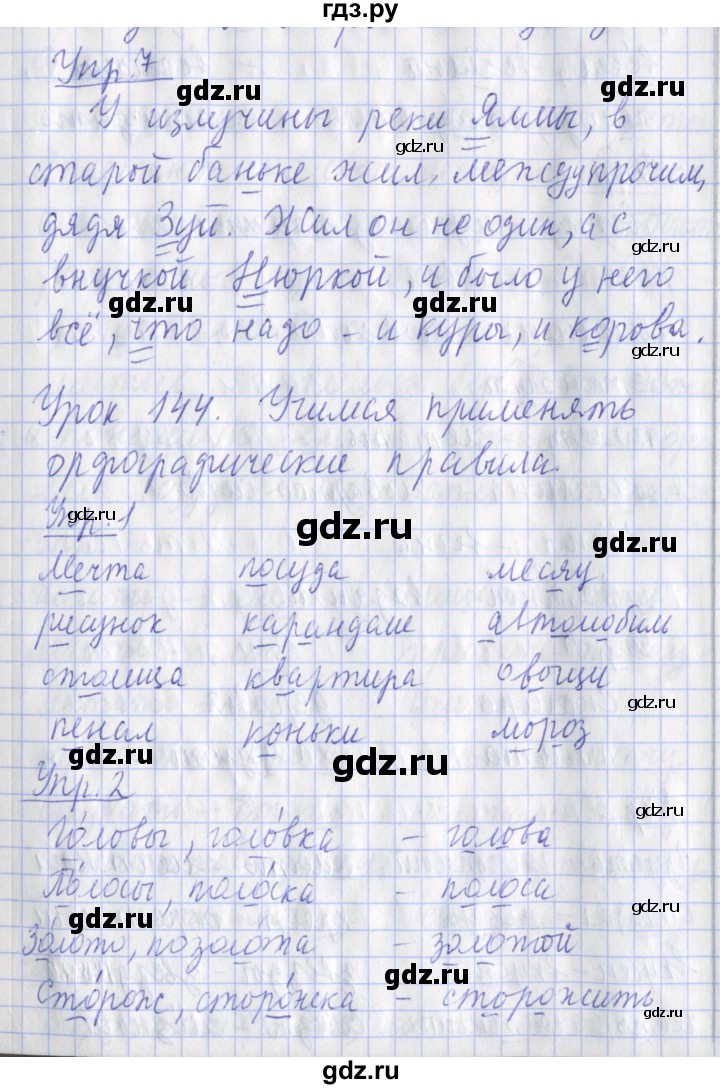 гдз.ру
Упр. 7
gdz.ru
gdz.ru
У излучины реки Яллы, в
gdz.ru
старой баньке жил, междупрочим,
дядя Зуй. Жил он не один, а с
gdz.ru
внучкой Нюркой, и было у него
gdz.ru
gdz.ru
всё, что надо – и куры, и корова.
gdz.ru
Урок 144. Учимся применять
орфографические правила.
gdz.ru
Упр. 1
gdz.ru
gdz.ru
Мечта посуда месяц
рисунок карандаш автомобиль
столица квартира овощи
gdz.ru
пенал коньки мороз
gdz.ru
gdz.ru
Упр. 2
Го́ловы, голо́вка – голова
По́лосы, поло́ска – полоса
gdz.ru
gdz.ru
Золото, позолота – золотой
gdz.ru
Сто́рож, сторо́жка – сторожить
gdz.ru
gdz.ru